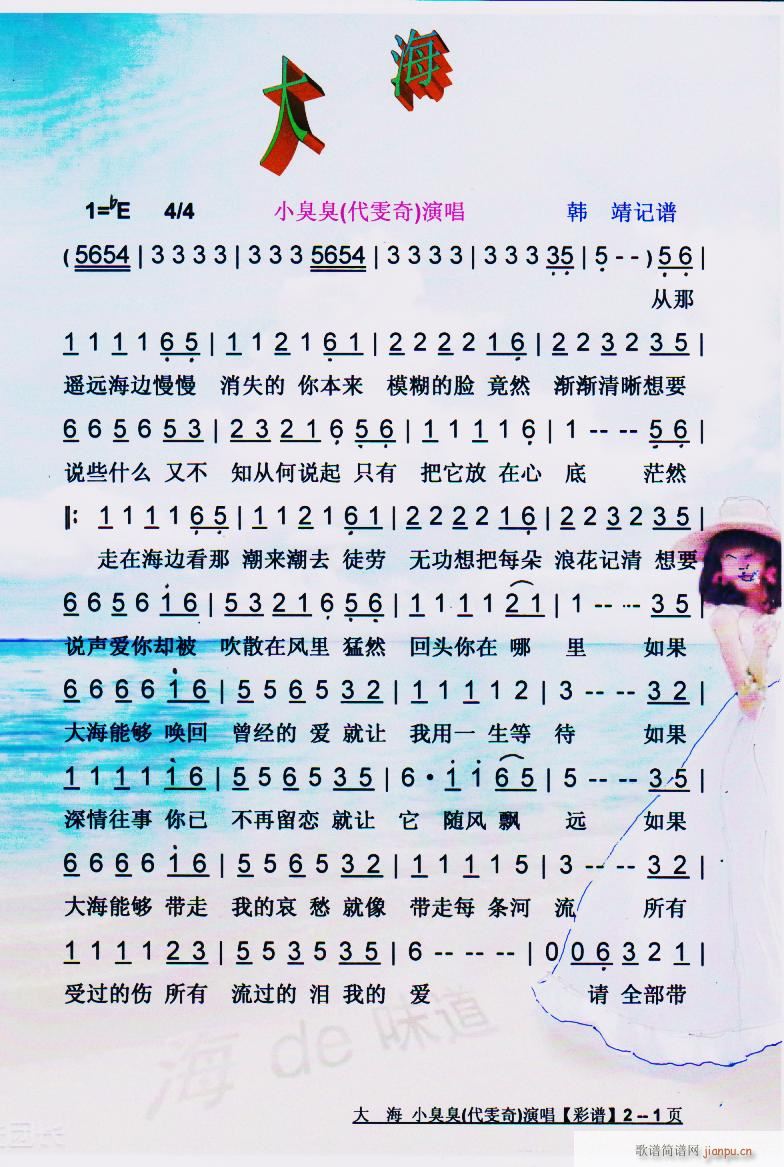 大 海
1=♭E 4/4 小臭臭(代雯奇)演唱 韩 靖记谱
( 5654 | 3 3 3 3 | 3 3 3 5654 | 3 3 3 3 | 3 3 3 35 | 5 - - ) 5 6 |
从那
1 1 1 1 6 5 | 1 1 2 1 6 1 | 2 2 2 2 1 6 | 2 2 3 2 3 5 |
遥远海边慢慢 消失的 你本来 模糊的脸 竟然 渐渐清晰想要
6 6 5 6 5 3 | 2 3 2 1 6 5 6 | 1 1 1 1 6 | 1 -- -- 5 6 |
说些什么 又不 知从何说起 只有 把它放 在心 底 茫然
‖: 1 1 1 1 6 5 | 1 1 2 1 6 1 | 2 2 2 2 1 6 | 2 2 3 2 3 5 |
走在海边看那 潮来潮去 徒劳 无功想把每朵 浪花记清 想要
6 6 5 6 1 6 | 5 3 2 1 6 5 6 | 1 1 1 1 2 1 | 1 -- -- 3 5 |
说声爱你却被 吹散在风里 猛然 回头你在 哪 里 如果
6 6 6 6 1 6 | 5 5 6 5 3 2 | 1 1 1 1 2 | 3 -- -- 3 2 |
大海能够 唤回 曾经的 爱 就让 我用一 生等 待 如果
1 1 1 1 1 6 | 5 5 6 5 3 5 | 6 · 1 1 6 5 | 5 -- -- 3 5 |
深情往事 你已 不再留恋 就让 它 随风 飘 远 如果
6 6 6 6 1 6 | 5 5 6 5 3 2 | 1 1 1 1 5 | 3 -- -- 3 2 |
大海能够 带走 我的哀 愁 就像 带走每 条河 流 所有
1 1 1 1 2 3 | 5 5 3 5 3 5 | 6 -- -- -- | 0 0 6 3 2 1 |
受过的伤 所有 流过的 泪 我的 爱 请 全部带
海 de 味道
大 海 小臭臭(代雯奇)演唱【彩谱】2 -- 1 页
歌谱简谱网 jianpu.cn